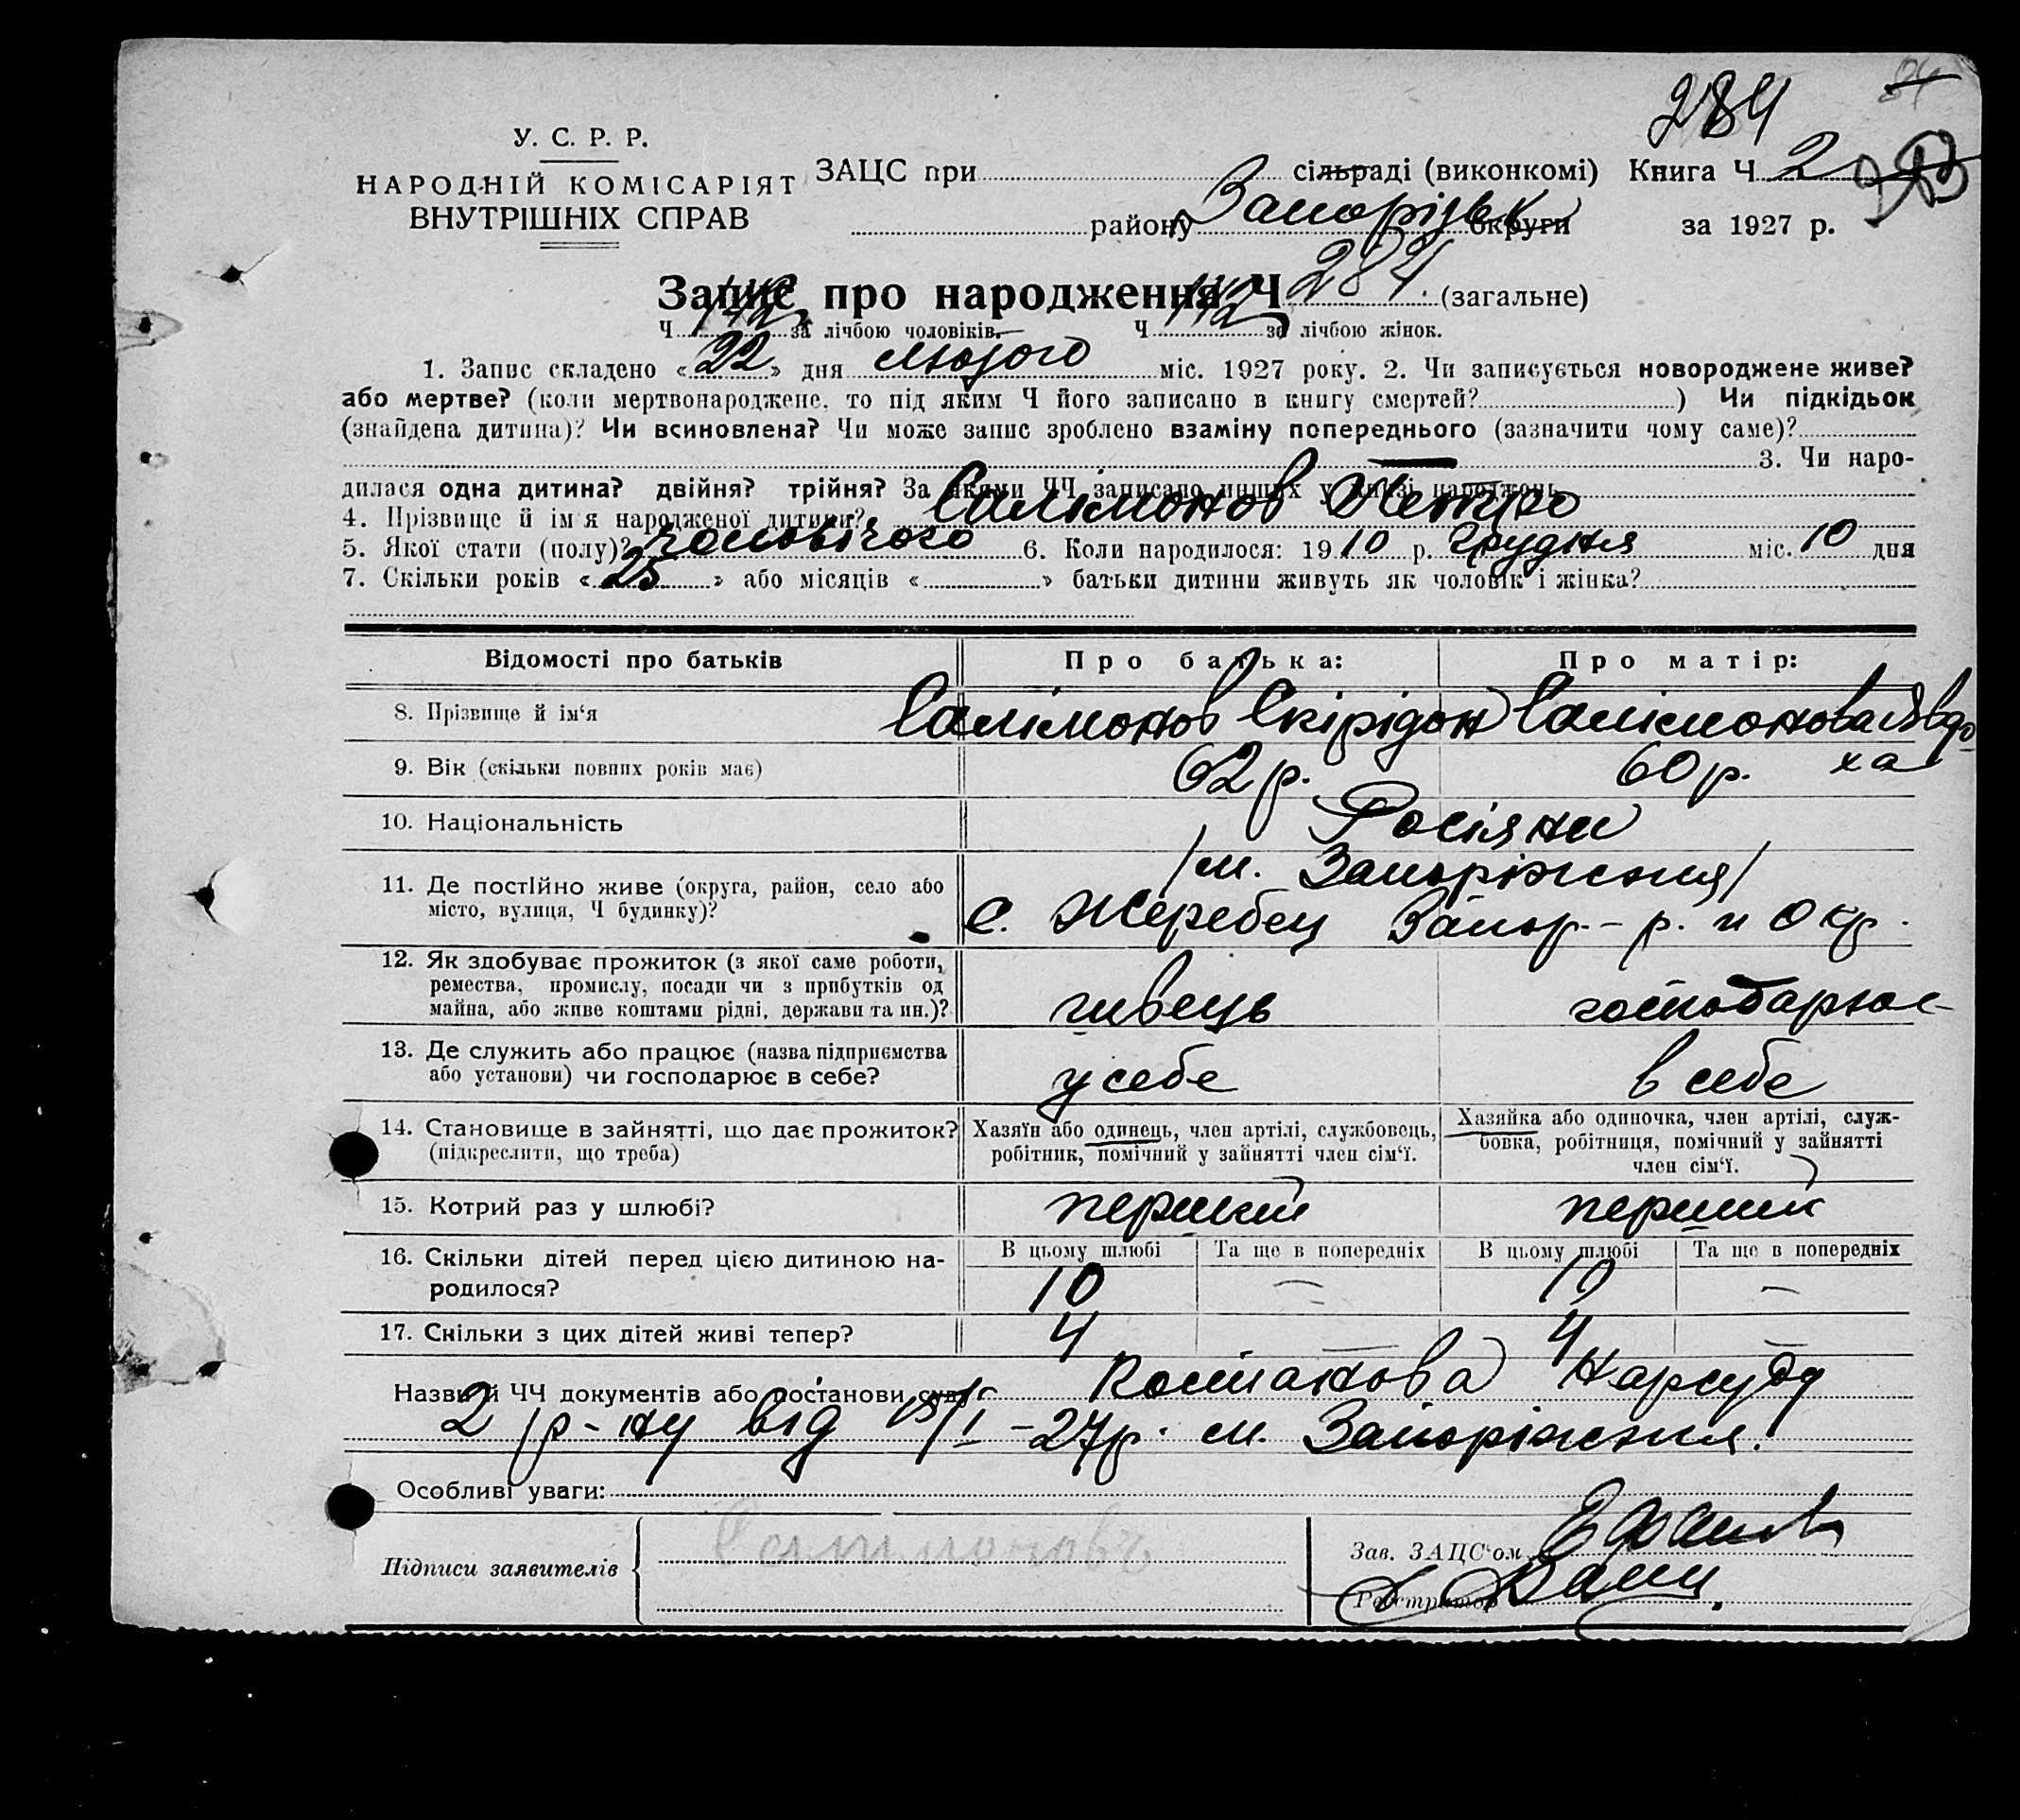 284
У. С. Р. Р.
НАРОДНІЙ КОМІСАРІЯТ
ВНУТРІШНІХ СПРАВ
ЗАЦС при сільраді (виконкомі) Книга Ч 2
району Запорізьк округи за 1927 р.
Запис про народження Ч 284. (загальне)
Ч 142 за лічбою чоловіків. Ч 142 за лічбою жінок.
1. Запис складено «22» дня лютого міс. 1927 року. 2. Чи записується новороджене живе?
або мертве? (коли мертвонароджене, то під яким Ч його записано в книгу смертей? ) Чи підкідьок
(знайдена дитина)? Чи всиновлена? Чи може запис зроблено взаміну попереднього (зазначити чому саме)?
3. Чи наро-
дилася одна дитина? двійня? трійня? За якими ЧЧ записано инших у книзі народжень
4. Прізвище й ім'я народженої дитини? Салімонов Петро
5. Якої стати (полу)? чоловічого 6. Коли народилося: 1910 р. Грудня міс. 10 дня
7. Скільки років «25» або місяців « » батьки дитини живуть як чоловік і жінка?
Відомості про батьків Про батька: Про матір:
8. Прізвище й ім'я Салімонов Скірідон Салімонова Явдо
ха
9. Вік (скільки повних років має) 62 р. 60 р.
10. Національність Росіяни
/м. Запоріжжя/
11. Де постійно живе (округа, район, село або
місто, вулиця, Ч будинку)? с. Жеребец Запор.-р. и Окр.
12. Як здобуває прожиток (з якої саме роботи,
ремества, промислу, посади чи з прибутків од
майна, або живе коштами рідні, держави та ин.)? швець господарює
13. Де служить або працює (назва підприємства
або установи) чи господарює в себе? у себе в себе
14. Становище в зайнятті, що дає прожиток?
(підкреслити, що треба)
Хазяїн або одинець, член артілі, службовець,
робітник, помічний у зайнятті член сім'ї.
Хазяйка або одиночка, член артілі, служ-
бовка, робітниця, помічний у зайнятті
член сім'ї.
15. Котрий раз у шлюбі? перший перший
16. Скільки дітей перед цією дитиною на-
родилося?
В цьому шлюбі Та ще в попередніх В цьому шлюбі Та ще в попередніх
10 — 10 —
17. Скільки з цих дітей живі тепер? 4 — 4 —
Назви й ЧЧ документів або постанови суду Постанова Нарсуду
2 р-ну від 15/I-27р. м. Запоріжжя.
Особливі уваги:
Підписи заявителів Салимоновъ
Зав. ЗАЦС'ом
Реєстратор